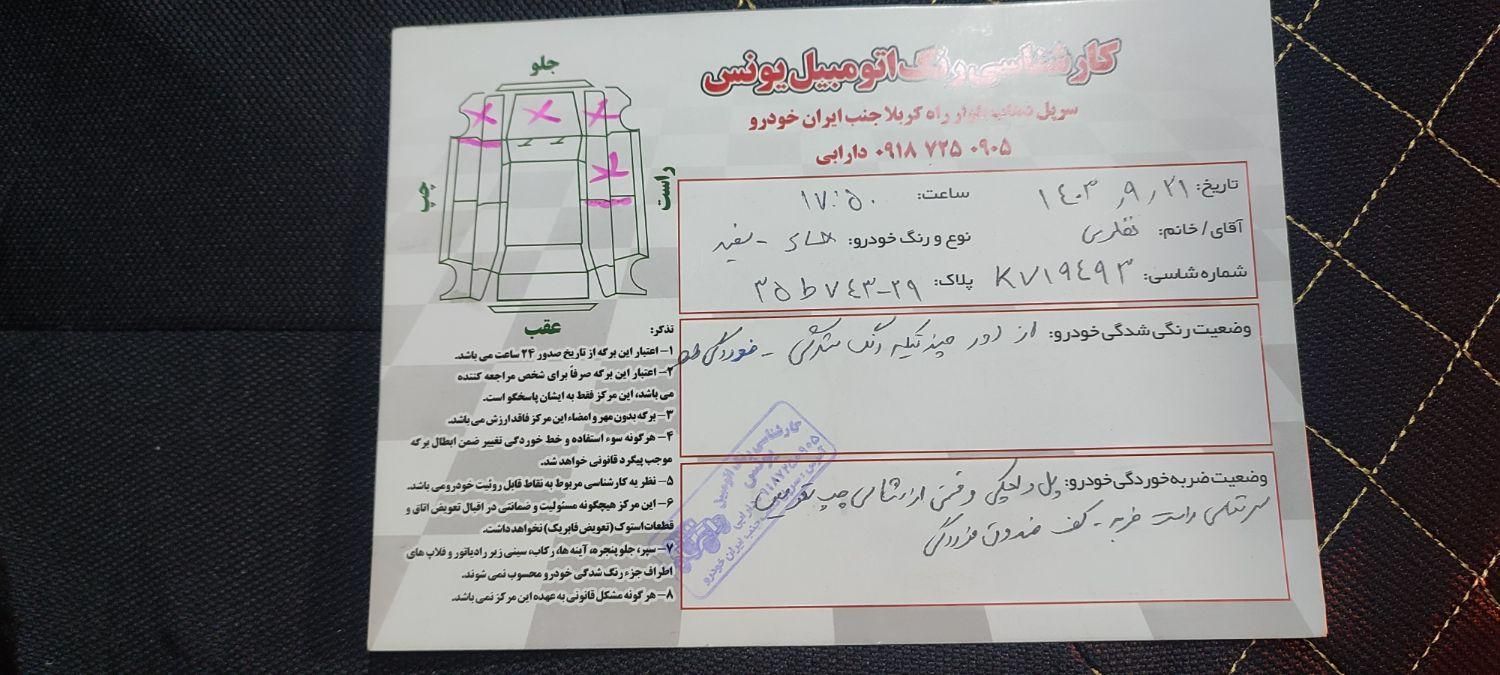 کارشناسی رنگ اتومبیل یونس
سرپل ذهاب بلوار راه کربلا جنب ایران خودرو
۰۹۱۸ ۷۲۵ ۰۹۰۵ دارابی
تاریخ: ۱۴۰۳/۹/۲۱ ساعت: ۱۷:۵۰
آقای/خانم: نوع و رنگ خودرو: سفید
شماره شاسی: K۷۱۹۴۹۳ پلاک: ۳۵ ط ۷۴۳-۲۹
وضعیت رنگی شدگی خودرو: از دور چند تیکه رنگ شدگی - خوردگی
وضعیت ضربه خوردگی خودرو: پل و
سرشاسی راست ضربه - کف صندوق خوردگی
جلو
چپ
راست
عقب
تذکر:
۱- اعتبار این برگه از تاریخ صدور ۲۴ ساعت می باشد.
۲- اعتبار این برگه صرفاً برای شخص مراجعه کننده
می باشد، این مرکز فقط به ایشان پاسخگو است.
۳- برگه بدون مهر و امضاء این مرکز فاقد ارزش می باشد.
۴- هرگونه سوء استفاده و خط خوردگی تغییر ضمن ابطال برگه
موجب پیگرد قانونی خواهد شد.
۵- نظریه کارشناسی مربوط به نقاط قابل روئیت خودرو می باشد.
۶- این مرکز هیچگونه مسئولیت و ضمانتی در اقبال تعویض اتاق و
قطعات استوک (تعویض فابریک) نخواهد داشت.
۷- سپر، جلو پنجره، آینه ها، رکاب، سینی زیر رادیاتور و فلاپ های
اطراف جزء رنگ شدگی خودرو محسوب نمی شوند.
۸- هرگونه مشکل قانونی به عهده این مرکز نمی باشد.
کارشناسی رنگ اتومبیل
یونس
۰۹۱۸۷۲۵۰۹۰۵ دارابی